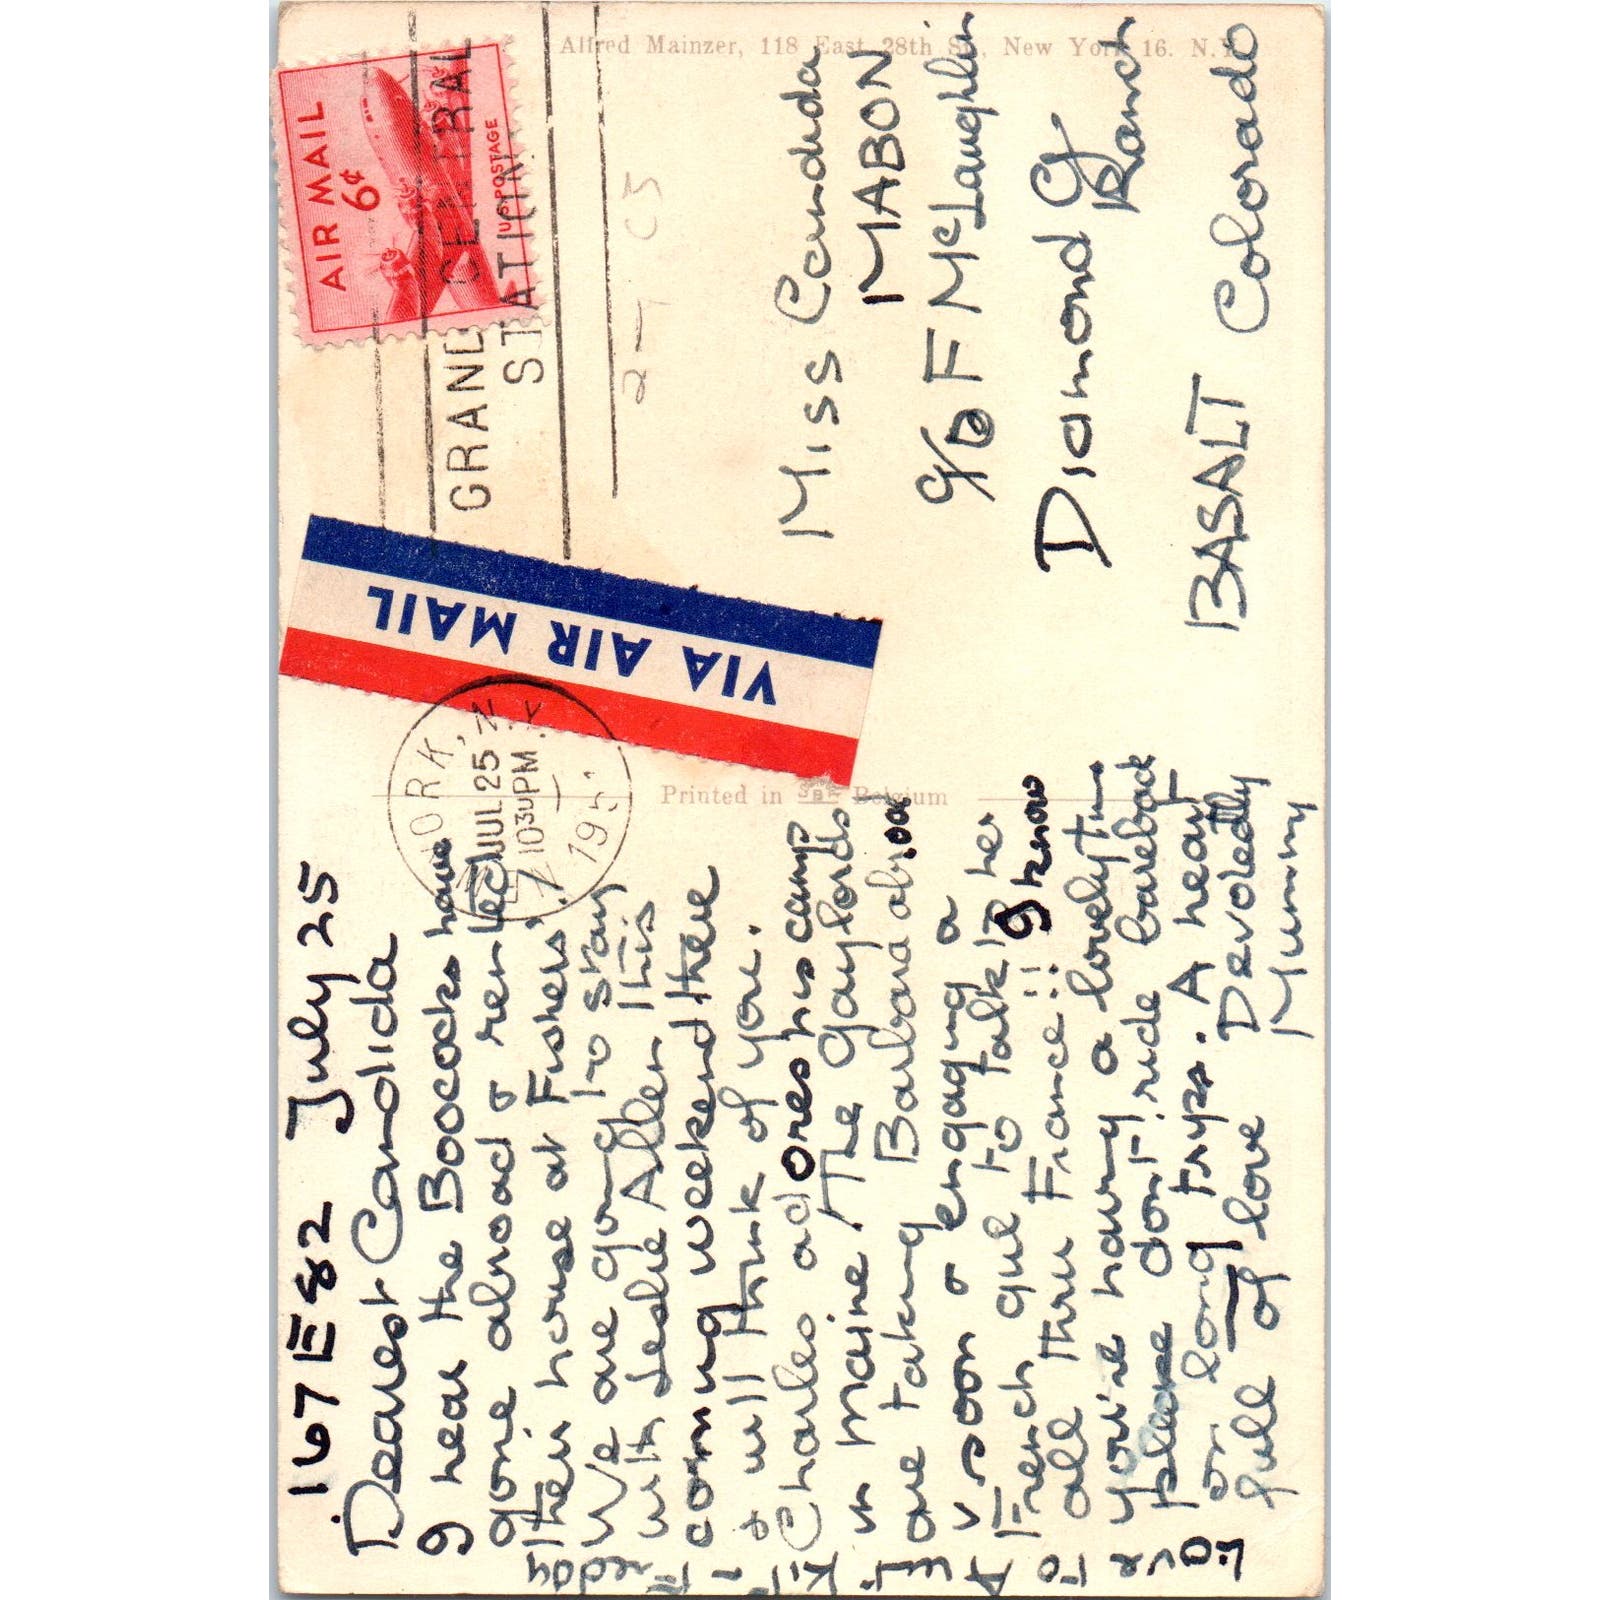 167 E 82 July 25
Dearest Candida
I hear the Boococks have
gone abroad & rented
their house at Fishers'.
We are going to stay
with Leslie Allen this
coming weekend there
& will think of you.
Charles adores his camp
in Maine. The Gaylords
are taking Barbara abroad
v soon & engaging a
French girl to talk to her
all thru France!! I know
you're having a lovely tim
please don't ride bareback
on long trips. A heart
full of love Devotedly
Mummy
Printed in Belgium
Alfred Mainzer, 118 East 28th St., New York 16. N.Y.
AIR MAIL
6¢
U.S. POSTAGE
GRAND CENTRAL
STATION
YORK, N.Y.
JUL 25
10 30 PM
195
VIA AIR MAIL
Miss Candida
MABON
c/o F McLaughlin
Diamond G
Ranch
BASALT Colorado